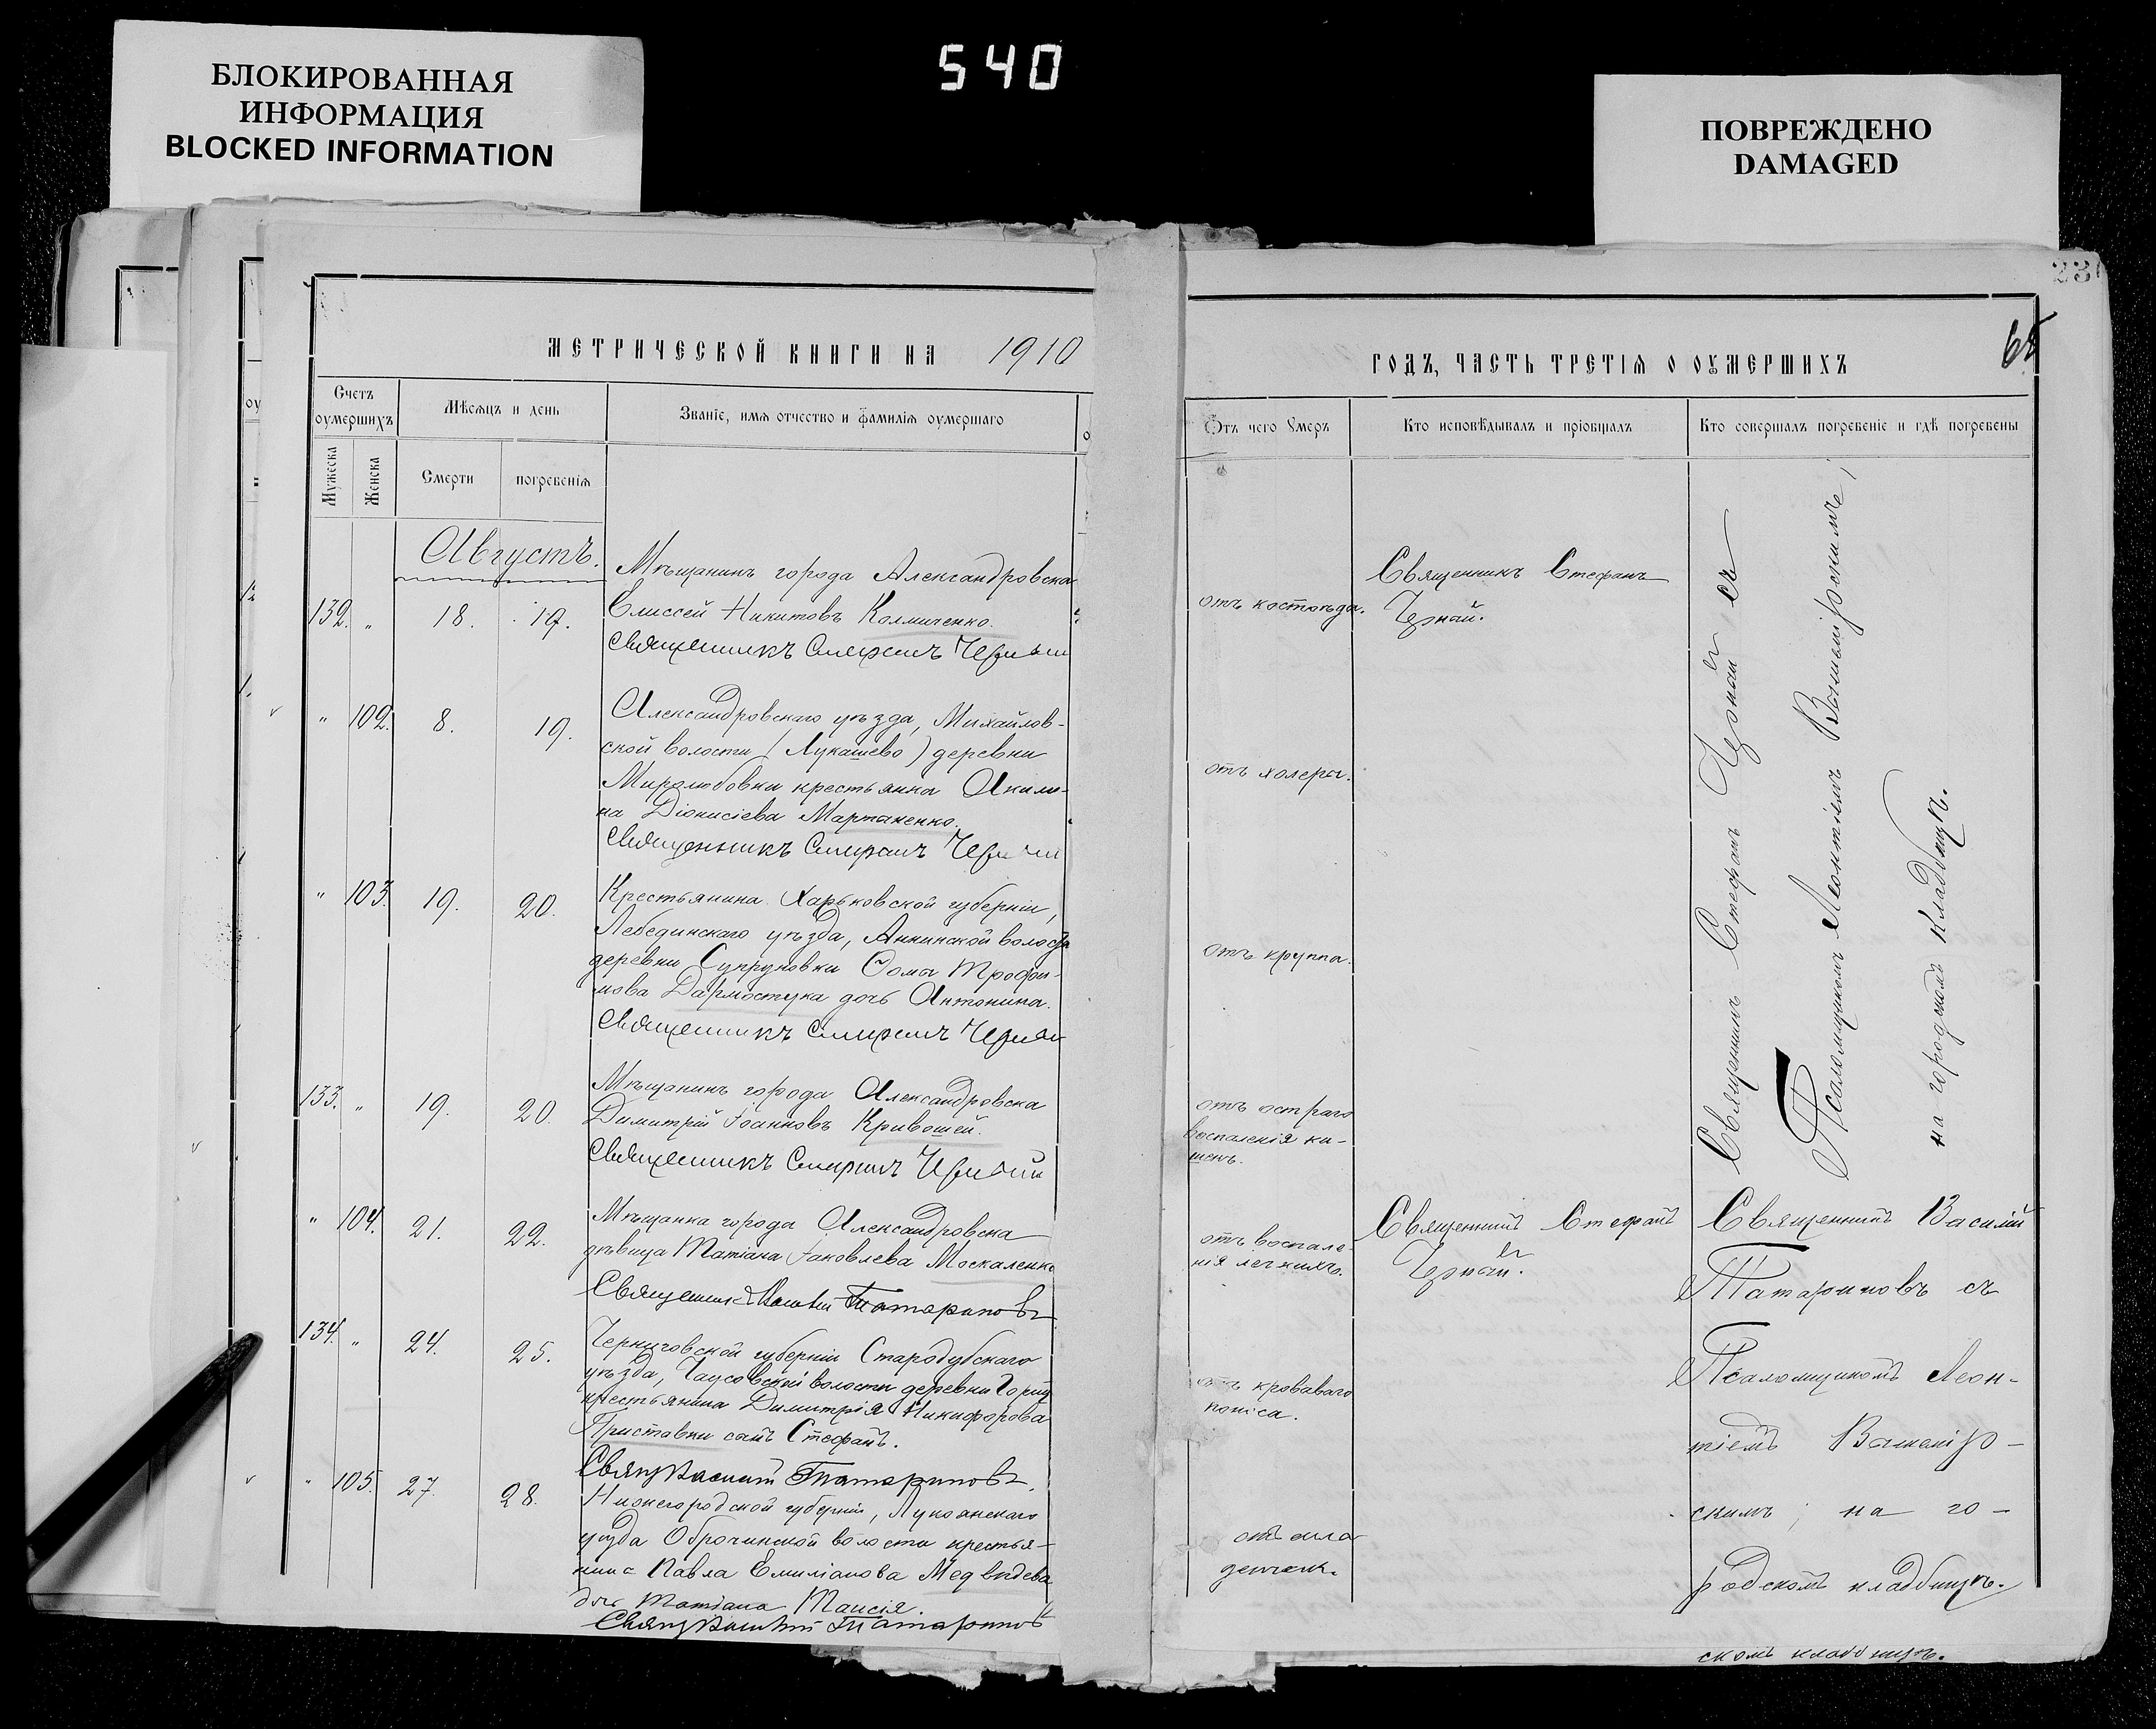 БЛОКИРОВАННАЯ
ИНФОРМАЦИЯ
BLOCKED INFORMATION
540
ПОВРЕЖДЕНО
DAMAGED
МЕТРИЧЕСКОЙ КНИГИ НА 1910
Счетъ
оумершихъ
Мѣсяцъ и день
Званіе, имя отчество и фамилія оумершаго
Мужеска
Женска
Смерти
погребенія
Августъ.
Мѣщанинъ города Александровска
132. „ 18. 19. Елиссей Никитовъ Колмиченко.
Священникъ Стефанъ Черный
„ 102. 8. 19. Александровскаго уѣзда, Михайлов-
ской волости (Лукашево) деревни
Миролюбовки крестьянка Акили-
на Діонисіева Мартыненко.
Священникъ Стефанъ Черный
„ 103. 19. 20. Крестьянина Харьковской губерніи,
Лебединскаго уѣзда, Аннинской волости
деревни Супруновки Ѳома Трофи-
мова Дармостука дочь Антонина.
Священникъ Стефанъ Черный
133. „ 19. 20. Мѣщанинъ города Александровска
Димитрій Іоанновъ Кривошей.
Священникъ Стефанъ Черный
„ 104. 21. 22. Мѣщанка города Александровска
дѣвица Татіана Іаковлева Москаленко
Священникъ Василій Татариновъ
134. „ 24. 25. Черниговской губерніи Стародубскаго
уѣзда, Чаусовской волости деревни
крестьянина Димитрія Никифорова
Приставки сынъ Стефанъ.
Свящ Василій Татариновъ.
„ 105. 27. 28. Нижегородской губерніи, Лукоянскаго
уѣзда Оброчинской волости крестья-
нина Павла Емиліанова Медвѣдева
дочь Татіана Таисія.
Свящ Василій Татариновъ
23
65
ГОДЪ, ЧАСТЬ ТРЕТІЯ О ОУМЕРШИХЪ
Отъ чего Умеръ
Кто исповѣдывалъ и пріобщалъ
Кто совершалъ погребеніе и гдѣ погребены
отъ костоѣда.
Священникъ Стефанъ
Черный.
отъ холеры.
отъ круппа.
отъ остраго
воспаленія ки-
шекъ.
Священникъ Стефанъ Черный съ
Псаломщикомъ Леонтіемъ Вышемірскимъ,
на городскомъ кладбищѣ.
отъ воспале-
нія легкихъ.
Священникъ Стефанъ
Черный.
отъ кроваваго
поноса.
отъ мла-
денческ.
Священникъ Василій
Татариновъ съ
Псаломщикомъ Леон-
тіемъ Вышемір-
скимъ, на го-
родскомъ кладбищѣ.
скомъ кладбищѣ.